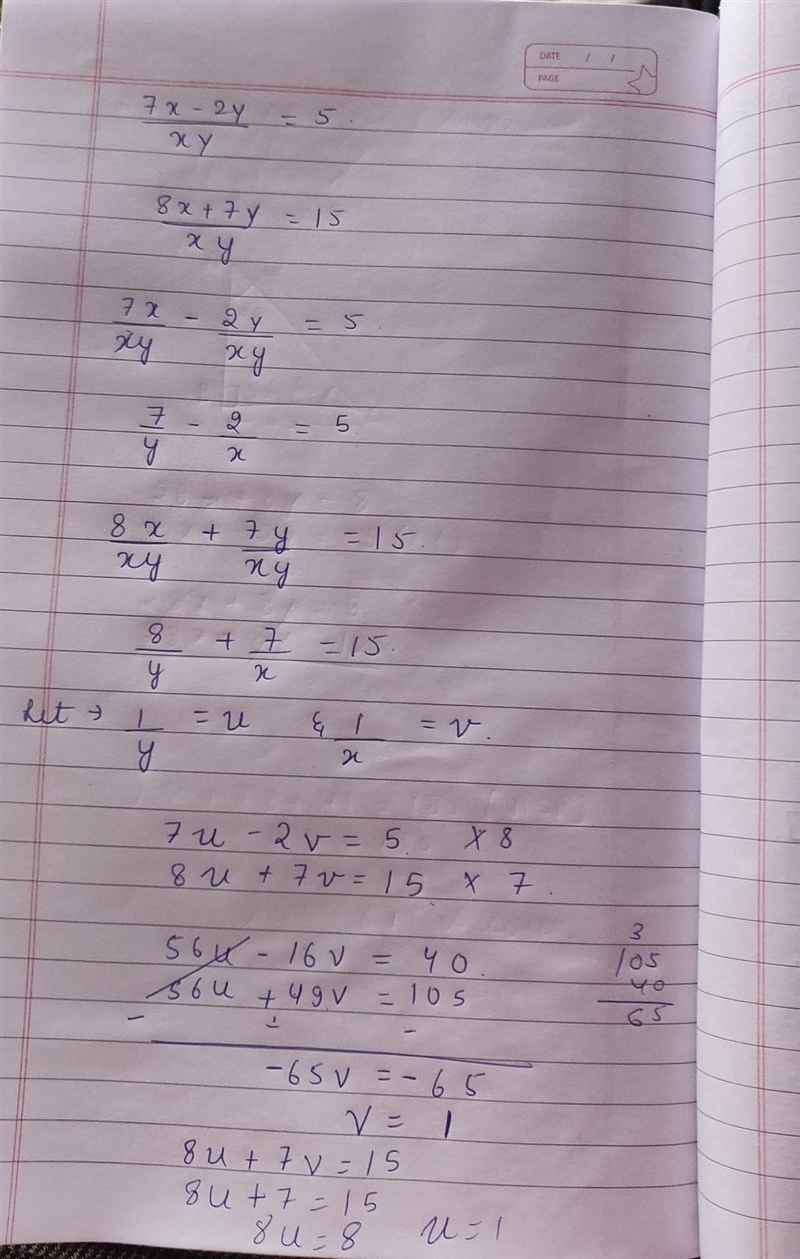 DATE / /
PAGE
7x - 2y / xy = 5.
8x + 7y / xy = 15
7x / xy - 2y / xy = 5.
7 / y - 2 / x = 5
8x / xy + 7y / xy = 15.
8 / y + 7 / x = 15.
Let → 1 / y = u & 1 / x = v.
7u - 2v = 5. × 8
8u + 7v = 15 × 7.
56u - 16v = 40.
56u + 49v = 105
- - -
3
105
40
65
-65v = -65
V = 1
8u + 7v = 15
8u + 7 = 15
8u = 8 u = 1